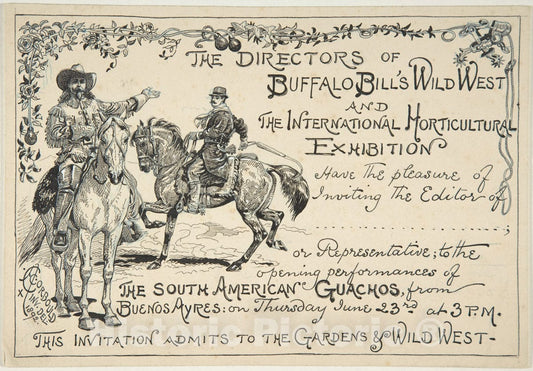 THE DIRECTORS OF
BUFFALO BILL'S WILD WEST
AND
THE INTERNATIONAL HORTICULTURAL
EXHIBITION
Have the pleasure of
Inviting the Editor of
..............................;
or Representative; to the
opening performances of
THE SOUTH AMERICAN GUACHOS, from
BUENOS AYRES: on Thursday June 23rd at 3 P.M.
THIS INVITATION ADMITS TO THE GARDENS & WILD WEST-
1892
Historic Pictoric